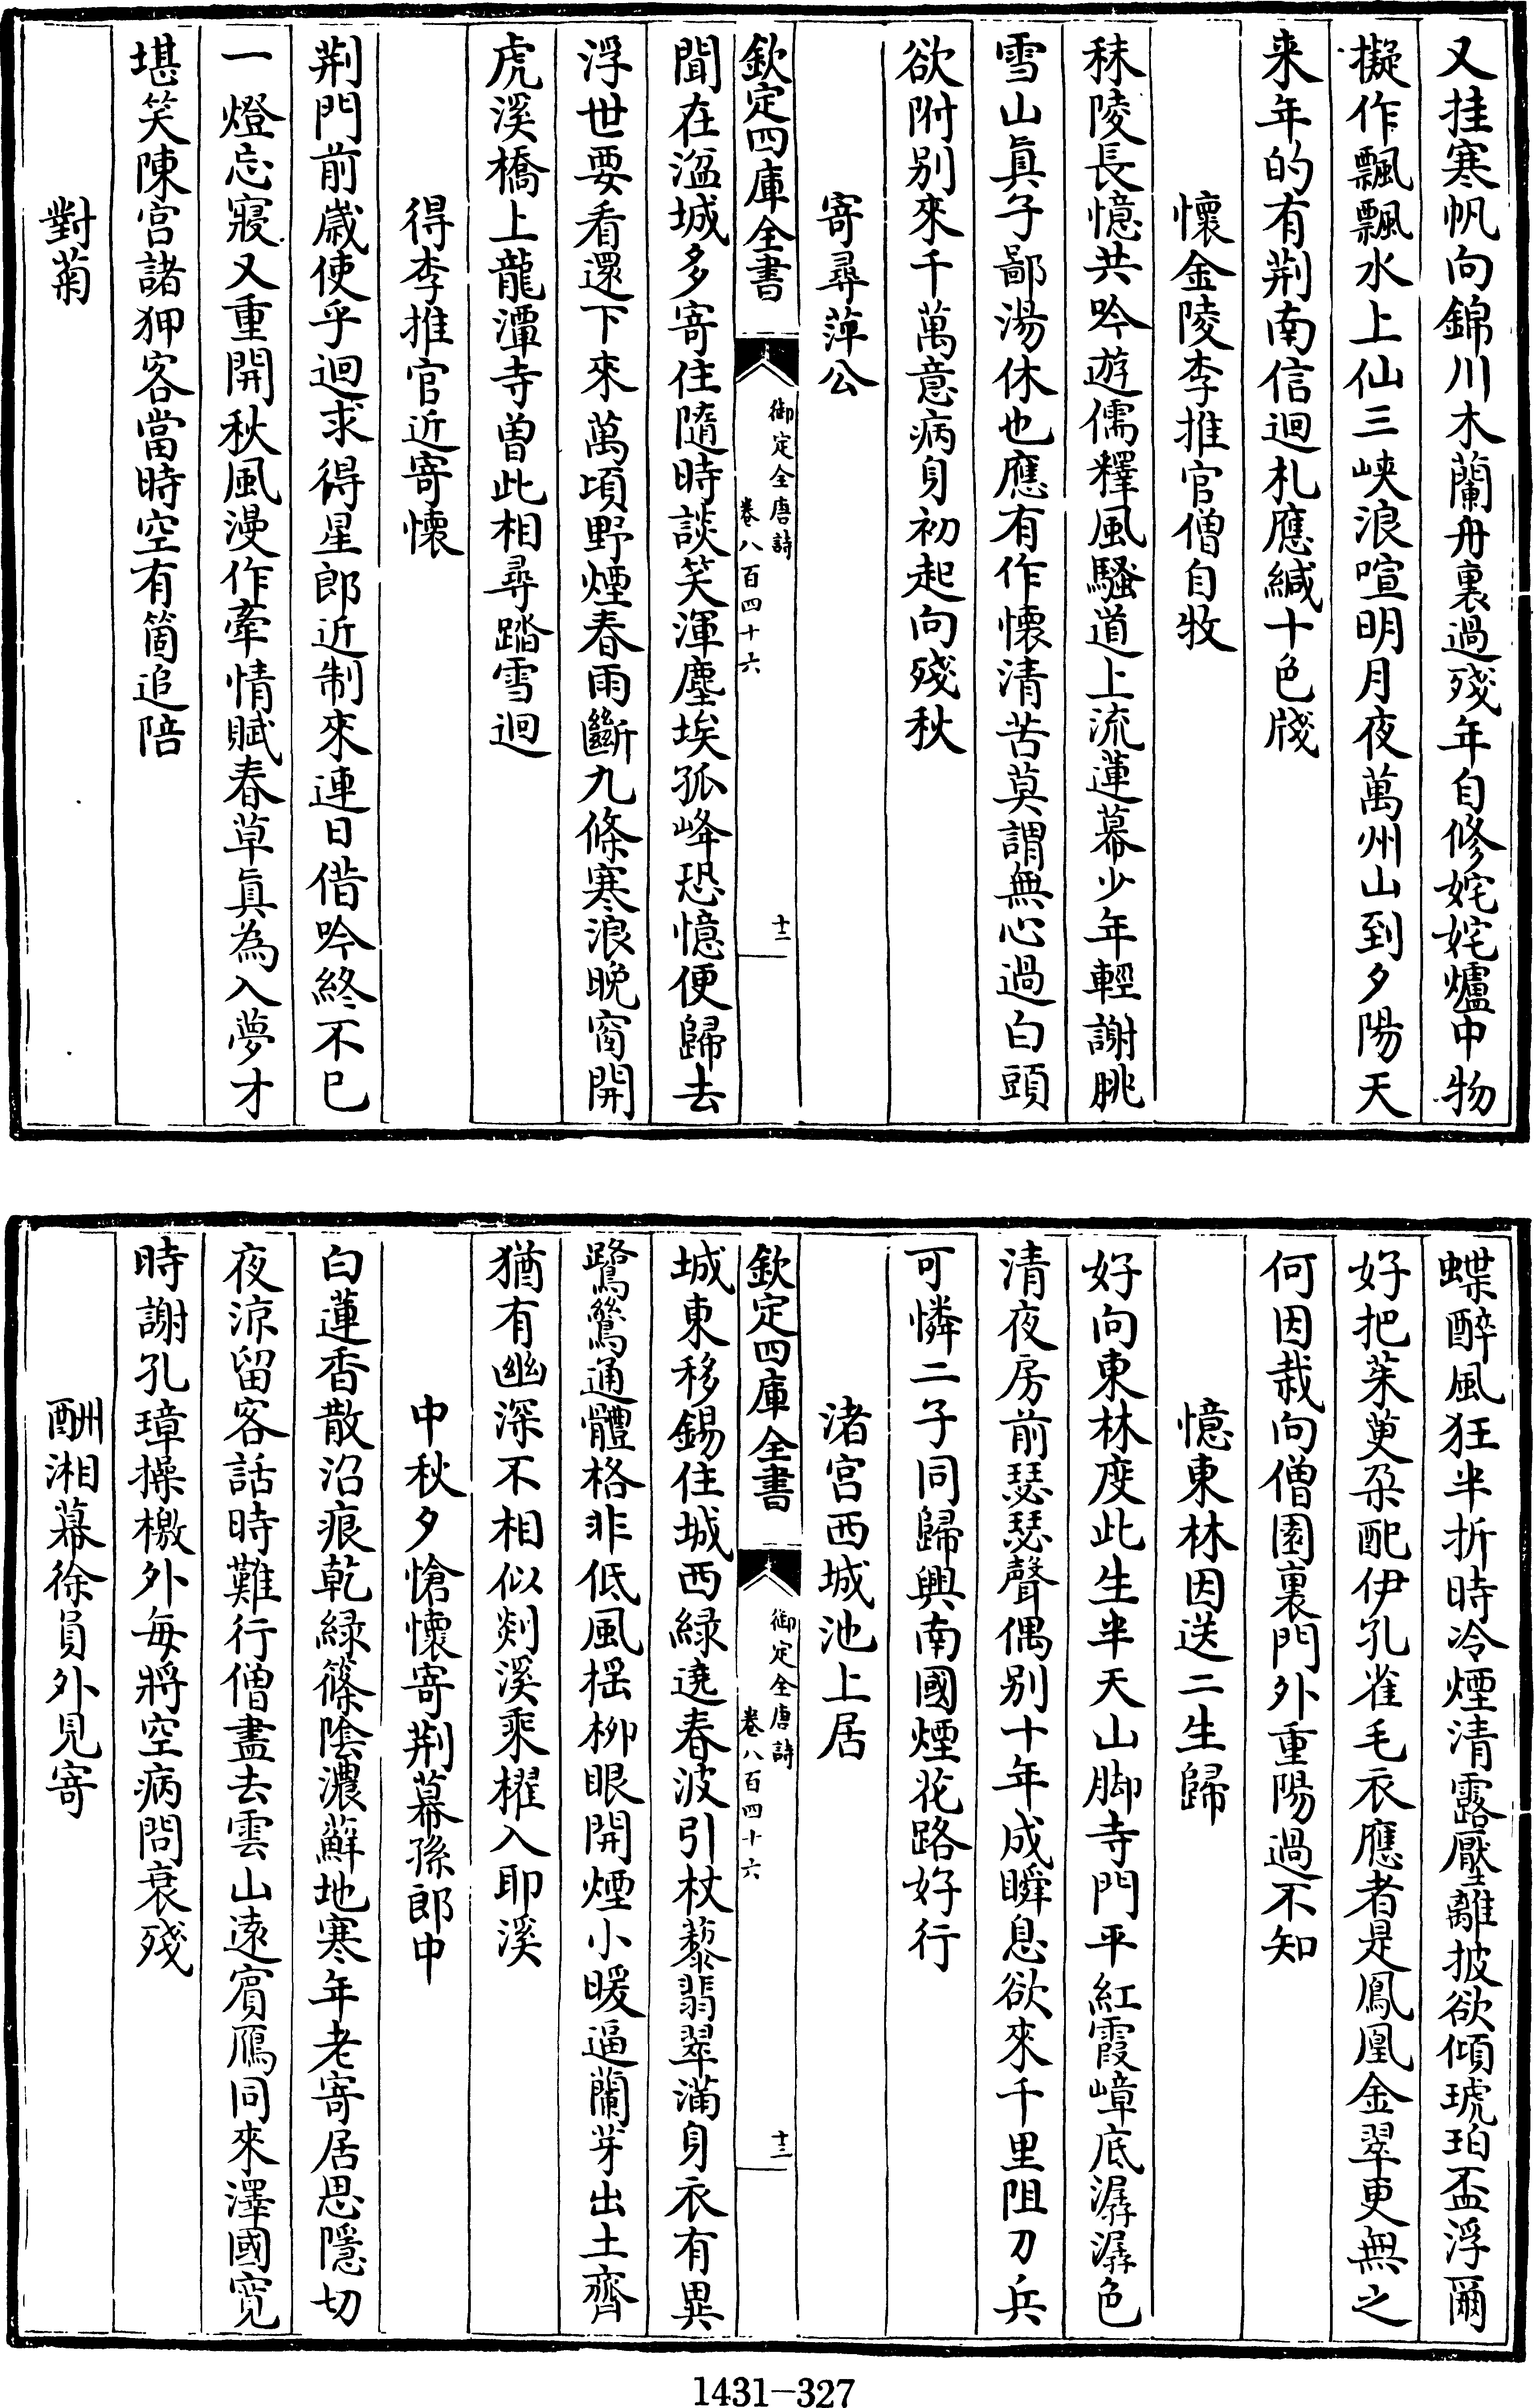 又挂寒帆向錦川木蘭舟裏過殘年自修姹姹爐中物
擬作飄飄水上仙三峽浪喧明月夜萬州山到夕陽天
来年的有荆南信迴札應緘十色牋
懷金陵李推官僧自牧
秣陵長憶共吟遊儒釋風騷道上流蓮幕少年輕謝朓
雪山眞子鄙湯休也應有作懷清苦莫謂無心過白頭
欲附别來千萬意病身初起向殘秋
寄尋萍公
欽定四庫全書
御定全唐詩
卷八百四十六
十二
聞在湓城多寄住隨時談笑渾塵埃孤峰恐憶便歸去
浮世要看還下來萬頃野煙春雨斷九條寒浪晚窗開
虎溪橋上龍潭寺曽此相尋踏雪迴
得李推官近寄懷
荆門前嵗使乎迴求得星郎近制來連日借吟終不已
一燈忘寢又重開秋風漫作牽情賦春草眞為入夢才
堪笑陳宫諸狎客當時空有箇追陪
對菊
蝶醉風狂半折時冷煙清露壓離披欲傾琥珀盃浮爾
好把茱萸朶配伊孔雀毛衣應者是鳳凰金翠更無之
何因栽向僧園裏門外重陽過不知
憶東林因送二生歸
好向東林度此生半天山脚寺門平紅霞嶂底潺潺色
清夜房前瑟瑟聲偶别十年成瞬息欲來千里阻刀兵
可憐二子同歸興南國煙花路好行
渚宫西城池上居
欽定四庫全書
御定全唐詩
卷八百四十六
十三
城東移錫住城西綠遶春波引杖藜翡翠滿身衣有異
鷺鷥通體格非低風摇柳眼開煙小暖逼蘭芽出土齊
猶有幽深不相似剡溪乘櫂入耶溪
中秋夕愴懷寄荆幕孫郎中
白蓮香散沼痕乾綠篠陰濃蘚地寒年老寄居思隱切
夜涼留客話時難行僧盡去雲山遠賓鴈同來澤國寛
時謝孔璋操檄外每將空病問衰殘
酬湘幕徐員外見寄
1431—327